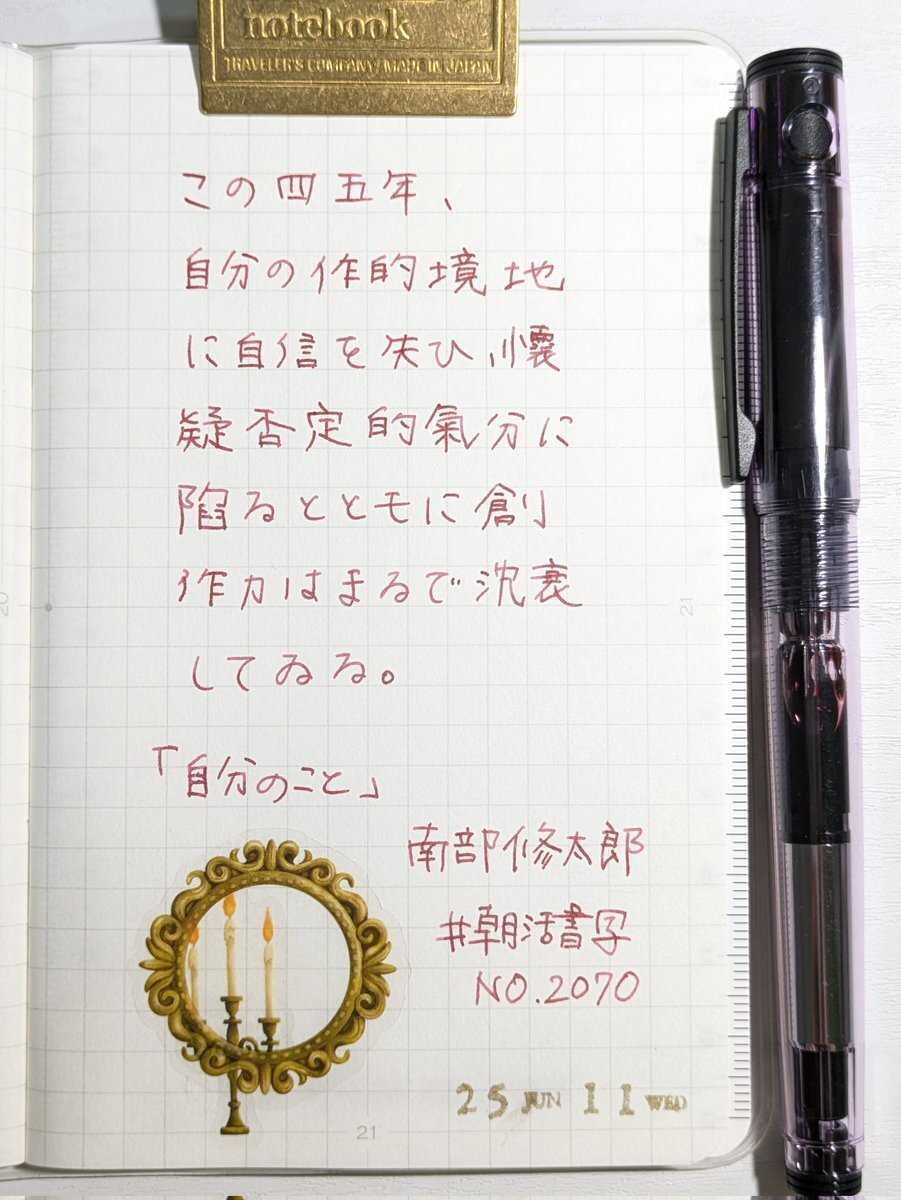 notebook
TRAVELER'S COMPANY MADE IN JAPAN
この四五年、
自分の作的境地
に自信を失ひ、懷
疑否定的氣分に
陷るとともに創
作力はまるで沈衰
してゐる。
「自分のこと」
南部修太郎
#朝活書写
NO.2070
25 JUN 11 WED
20
21
21